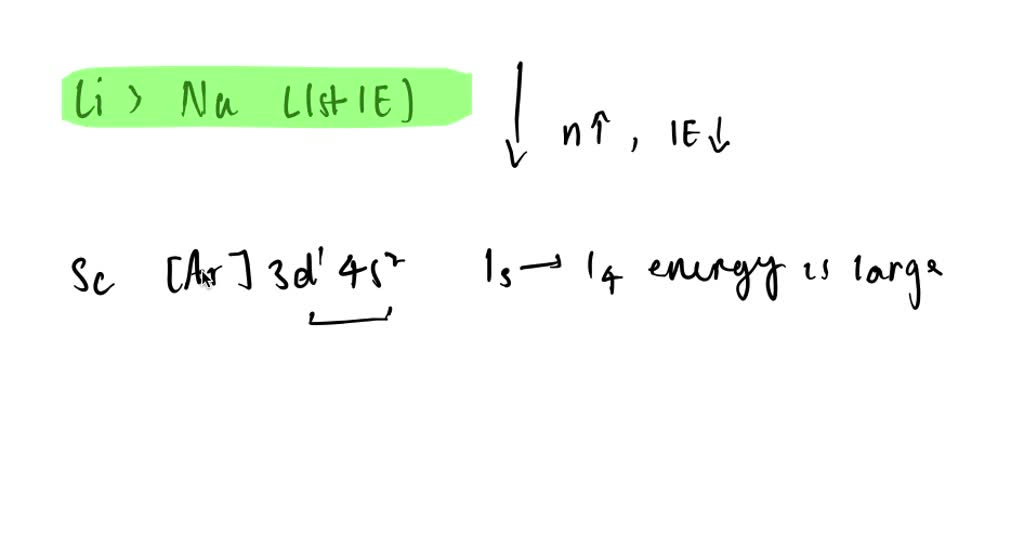 Li > Na (1st IE)
n↑, IE↓
Sc [Ar] 3d¹ 4s² I₃ → I₄ energy is large